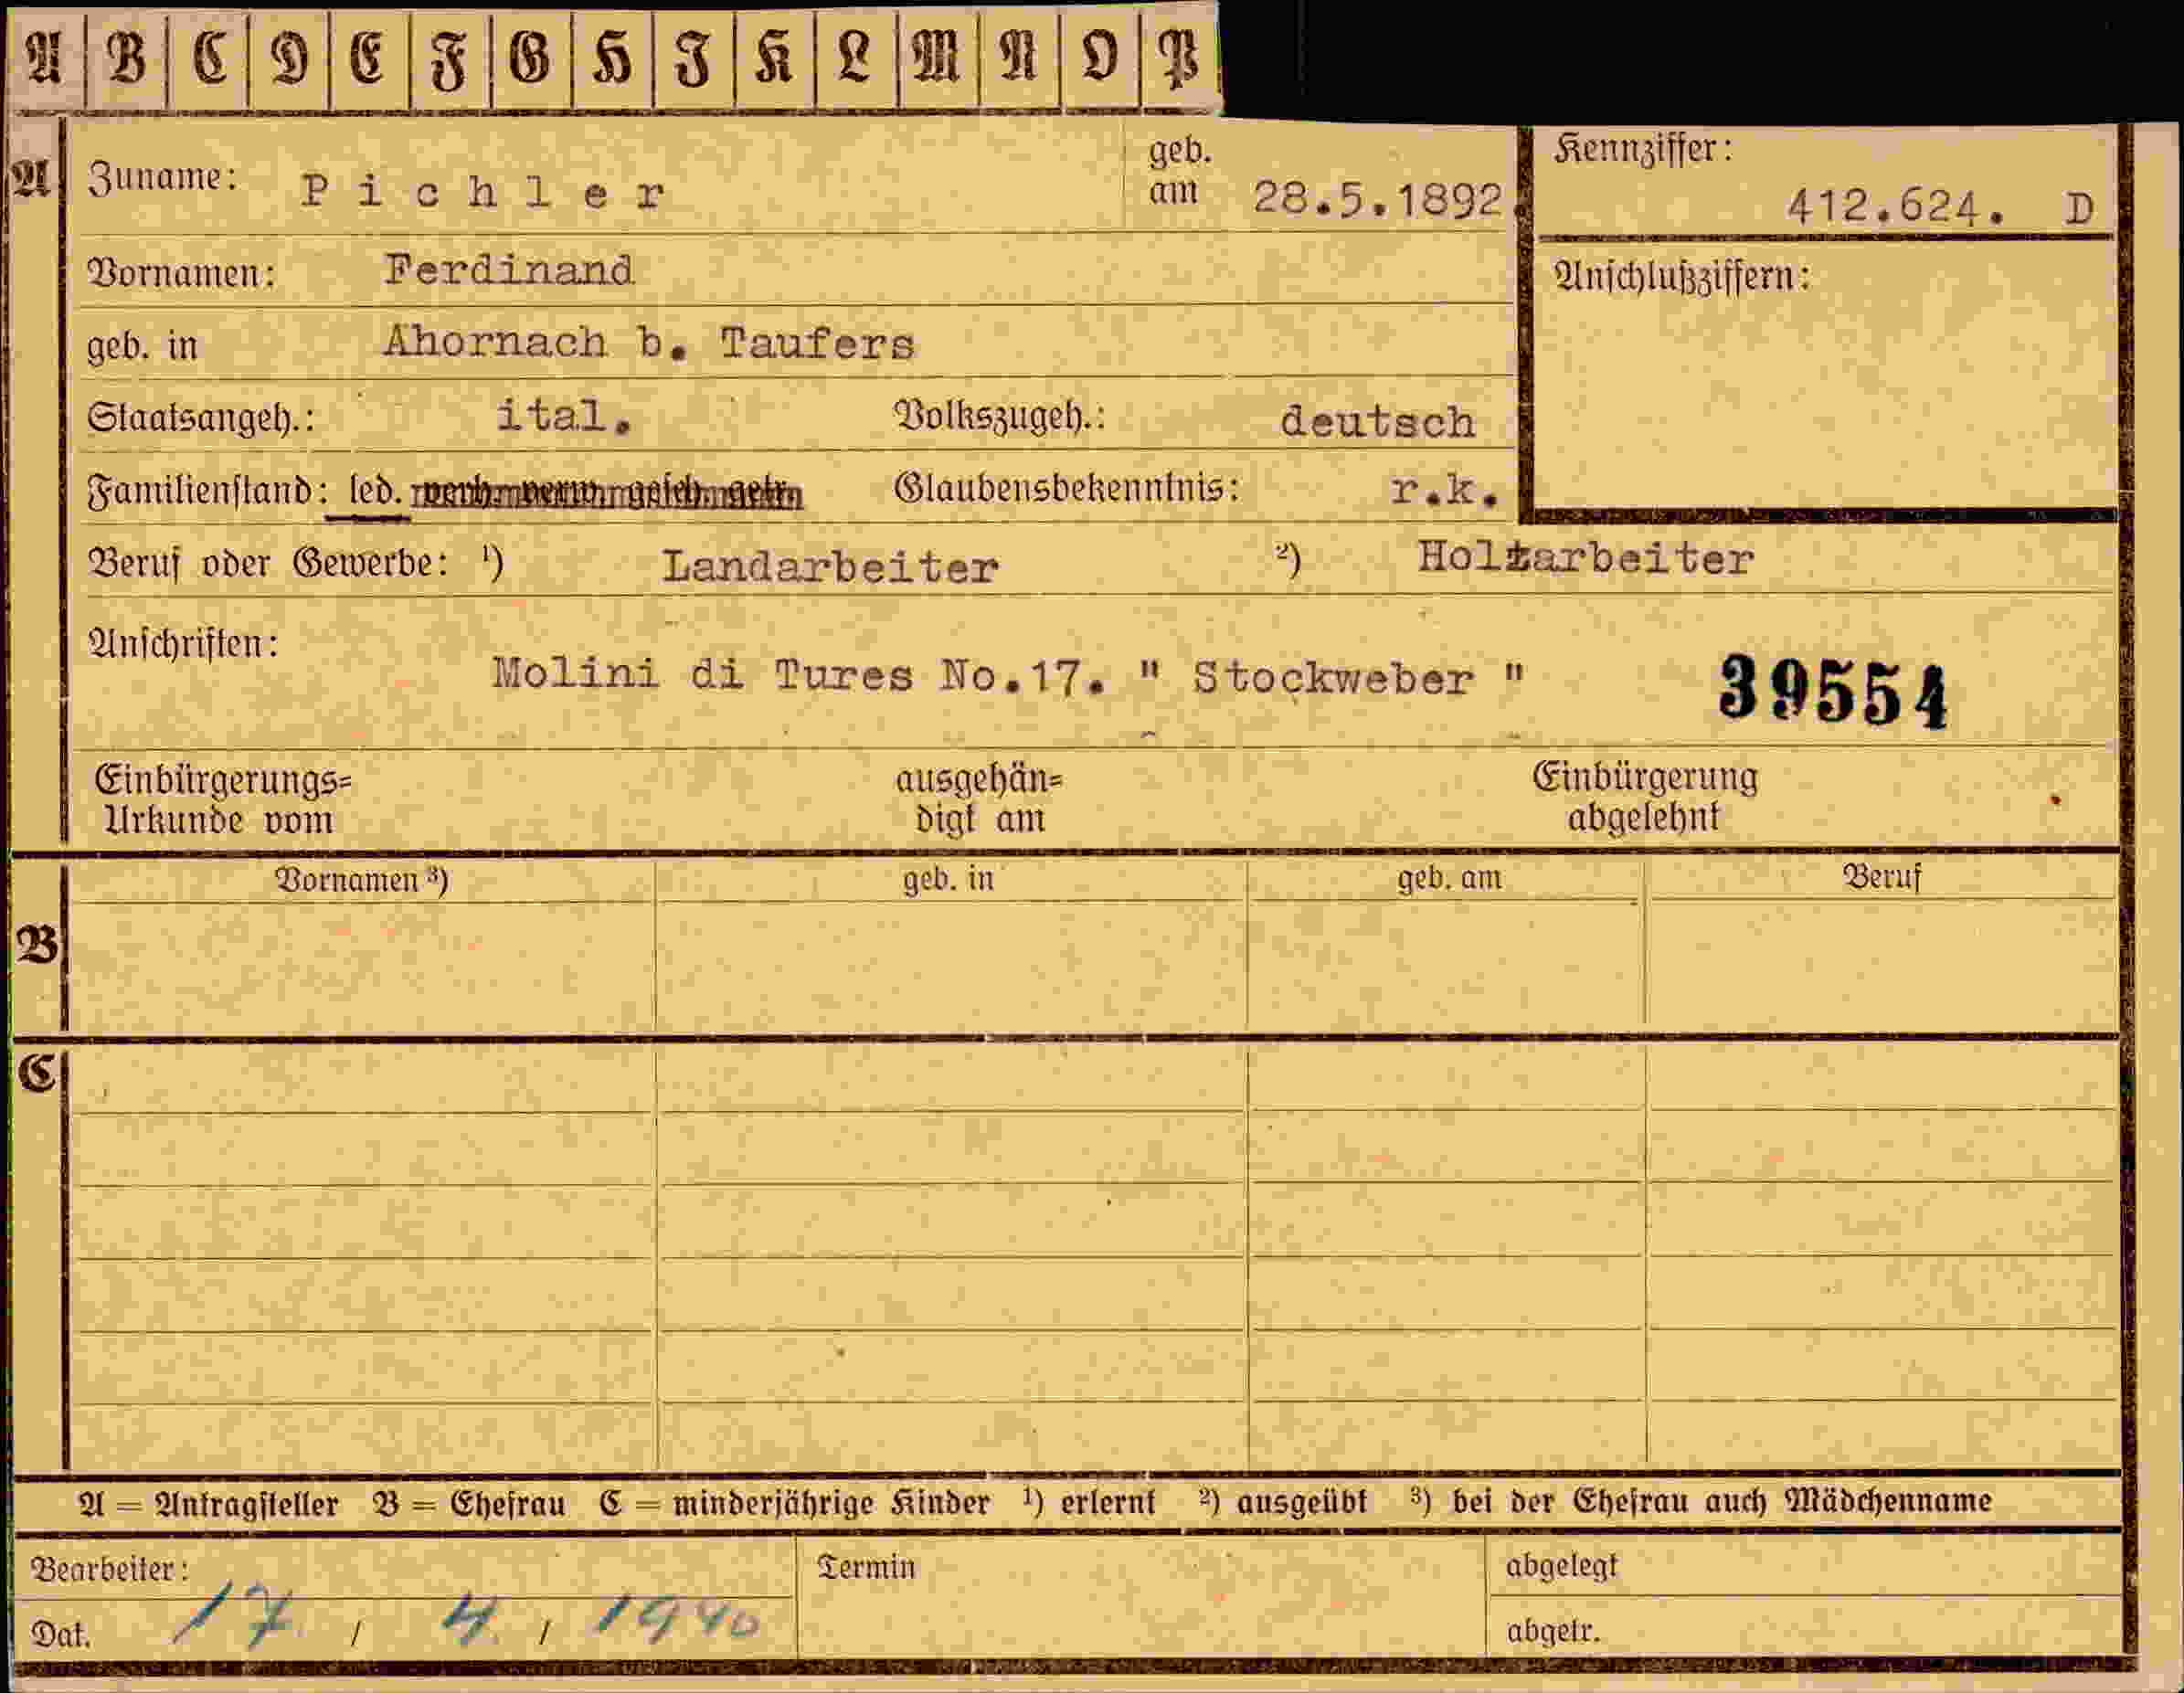 A B C D E F G H I K L M N O P
A Zuname: Pichler geb. am 28.5.1892. Kennziffer: 412.624. D
Vornamen: Ferdinand Anschlußziffern:
geb. in Ahornach b. Taufers
Staatsangeh.: ital. Volkszugeh.: deutsch
Familienstand: led. verh. verw. gesch. getr. Glaubensbekenntnis: r.k.
Beruf oder Gewerbe: ¹) Landarbeiter ²) Holzarbeiter
Anschriften:
Molini di Tures No.17. " Stockweber " 39554
Einbürgerungs= ausgehän= Einbürgerung
Urkunde vom digt am abgelehnt
Vornamen ³) geb. in geb. am Beruf
B
C
A = Antragsteller B = Ehefrau C = minderjährige Kinder ¹) erlernt ²) ausgeübt ³) bei der Ehefrau auch Mädchenname
Bearbeiter: Termin abgelegt
Dat. 17. / 4. / 1940 abgetr.